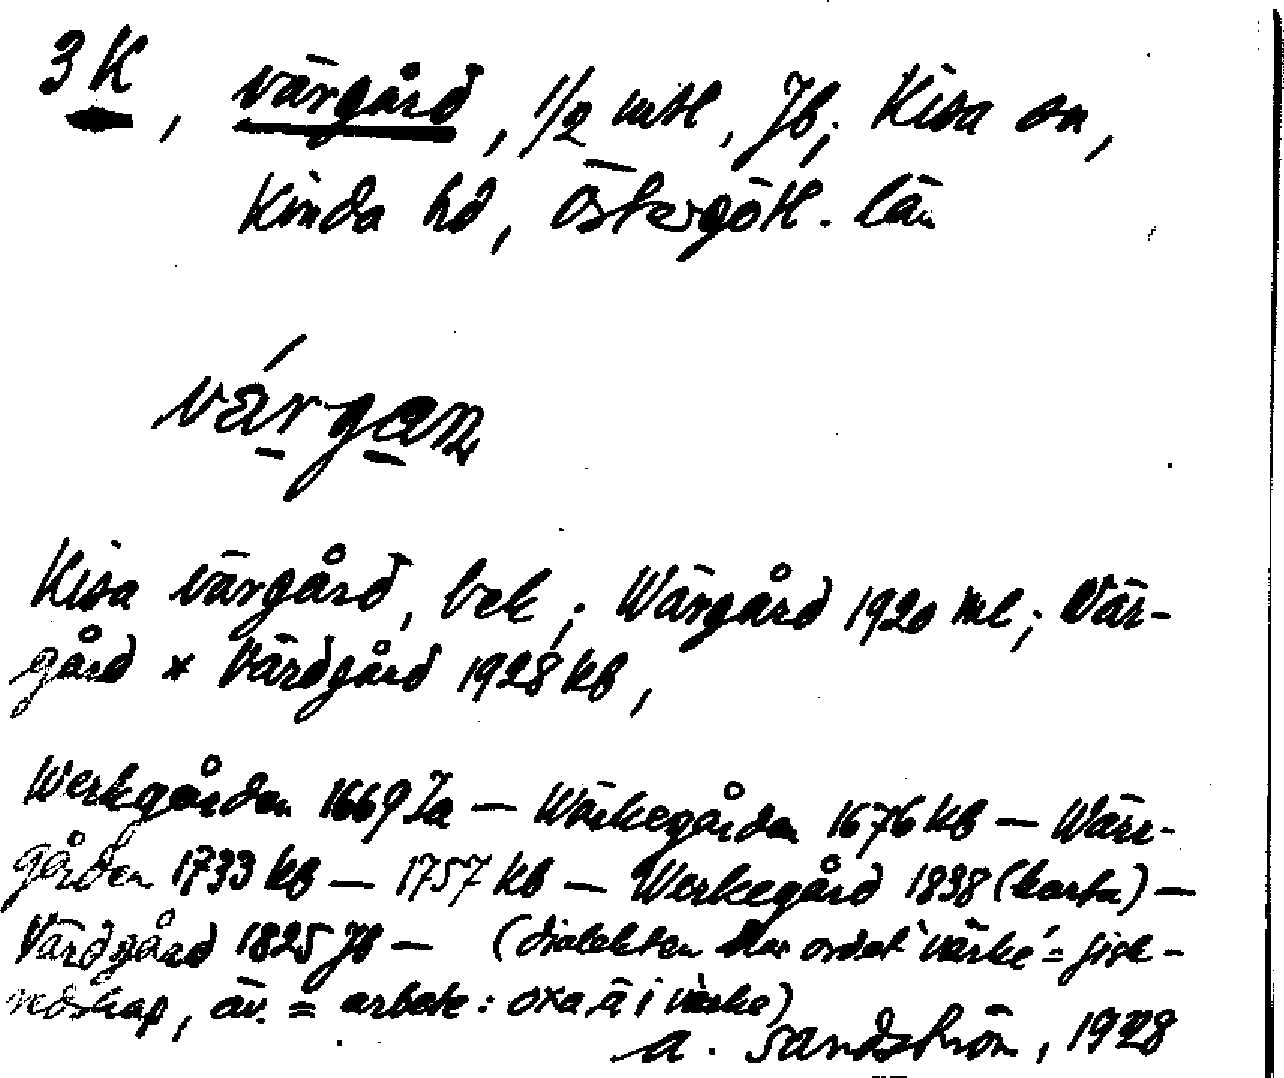 3 K, värgård, 1/2 mtl, Jb; Kisa sn,
Kinda hd, Östergötl. län
várgan
Kisa värgård, bek; Wärgård 1920 ml; Vär-
gård * Värdgård 1928 kb,
Werkgården 1669 Ja — Wärkegården 1676 kb — Wärr-
gården 1733 kb — 1757 kb — Werkegård 1838 (karta) —
Värdgård 1825 Jb — (dialekten har ordet 'värke' = fisk-
redskap, äv. = arbete: oxa ä i värke)
A. Sandström, 1928